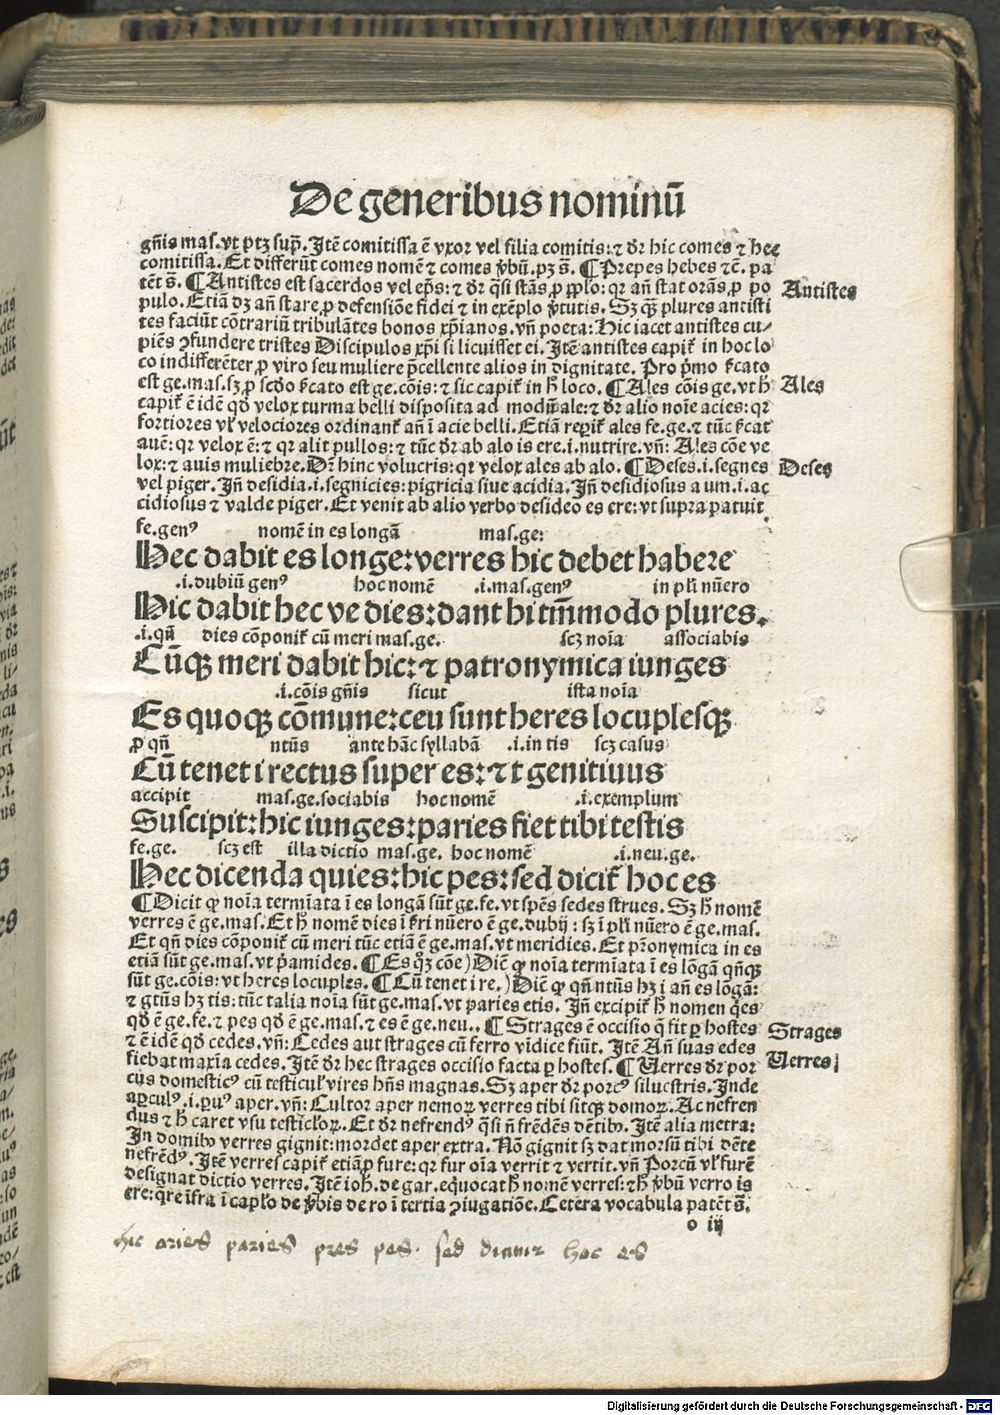 De generibus nominū
gn̄is mas. vt ptꝫ sup̄. Itē comitissa ē vxor vel filia comitis: ⁊ dr̄ hic comes ⁊ hec
comitissa. Et differūt comes nomē ⁊ comes v̄bū. pꝫ s̄. ¶ Prepes hebes ⁊c̄. pa
tēt s̄. ¶ Antistes est sacerdos vel ep̄s: ⁊ dr̄ q̄si stās ꝓ pplo: qꝛ an̄ stat orās ꝓ po
Antistes
pulo. Etiā dꝫ an̄ stare ꝓ defensiōe fidei ⁊ in exēplo v̄tutis. Sꝫ qꝫ plures antisti
tes faciūt cōtrariū tribulātes bonos xp̄ianos. vn̄ poeta: Hic iacet antistes cu-
piēs ꝯfundere tristes Discipulos xp̄i si licuisset ei. Itē antistes capit᷑ in hoc lo
co indifferēter ꝓ viro seu muliere p̄cellente alios in dignitate. Pro p̄mo s̄cato
est ge. mas. sꝫ ꝓ scd̄o s̄cato est ge. cōis: ⁊ sic capit᷑ in h̄ loco. ¶ Ales cōis ge. vt h̄
Ales
capit᷑ ē idē qd̄ velox turma belli disposita ad modū ale: ⁊ dr̄ alio noīe acies: qꝛ
fortiores vl̓ velociores ordinant᷑ an̄ i acie belli. Etiā reꝑit᷑ ales fe. ge. ⁊ tūc s̄cat
auē: qꝛ velox ē: ⁊ qꝛ alit pullos: ⁊ tūc dr̄ ab alo is ere .i. nutrire. vn̄: Ales cōe ve
lox: ⁊ auis muliebre. Dr̄ hinc volucris: qꝛ velox ales ab alo. ¶ Deses .i. segnes
Deses
vel piger. In̄ desidia .i. segnicies: pigricia siue acidia. In̄ desidiosus a um .i. ac
cidiosus ⁊ valde piger. Et venit ab alio verbo desideo es ere: vt supra patuit.
fe. genꝰ nomē in es longā mas. ge:
Hec dabit es longe: verres hic debet habere
.i. dubiū genꝰ hoc nomē .i. mas. genꝰ in pl̓i nūero
Hic dabit hec ve dies: dant hi tm̄modo plures.
.i. qn̄ dies cōponit᷑ cū meri mas. ge. scꝫ noīa associabis
Cūqꝫ meri dabit hic: ⁊ patronymica iunges
.i. cōis gn̄is sicut ista noīa
Es quoqꝫ cōmune: ceu sunt heres locuplesqꝫ
ꝓ qn̄ ntūs ante hāc syllabā .i. in tis scꝫ casus
Cū tenet i rectus super es: ⁊ t genitiuus
accipit mas. ge. sociabis hoc nomē .i. exemplum
Suscipit: hic iunges: paries fiet tibi testis
fe. ge. scꝫ est illa dictio mas. ge. hoc nomē .i. neu. ge.
Hec dicenda quies: hic pes: sed dicit᷑ hoc es
¶ Dicit ꝙ noīa termīata ī es longā sūt ge. fe. vt spēs sedes strues. Sꝫ h̄ nomē
verres ē ge. mas. Et h̄ nomē dies ī s̄ri nūero ē ge. dubij: sꝫ ī pl̓i nūero ē ge. mas.
Et qn̄ dies cōponit᷑ cū meri tūc etiā ē ge. mas. vt meridies. Et pr̄onymica in es
etiā sūt ge. mas. vt p̄amides. ¶ Es qꝫ cōe) Dic̄ ꝙ noīa termīata ī es lōgā qn̄qꝫ
sūt ge. cōis: vt heres locuples. ¶ Cū tenet i re.) Dic̄ ꝙ qn̄ ntūs hꝫ i an̄ es lōgā:
⁊ gtūs hꝫ tis: tūc talia noīa sūt ge. mas. vt paries etis. In̄ excipit᷑ h̄ nomen q̄es
qd̄ ē ge. fe. ⁊ pes qd̄ ē ge. mas. ⁊ es ē ge. neu.. ¶ Strages ē occisio q̄ fit ꝑ hostes
Strages
⁊ ē idē qd̄ cedes. vn̄: Cedes aut strages cū ferro vīdice fiūt. Itē An̄ suas edes
fiebat maxīa cedes. Itē dr̄ hec strages occisio facta ꝑ hostes. ¶ Verres dr̄ por
Verres
cus domesticꝰ cū testicul̓ vires hn̄s magnas. Sꝫ aper dr̄ porcꝰ siluestris. Inde
aꝑculꝰ .i. ꝑuꝰ aper. vn̄: Cultor aper nemoꝝ verres tibi sitqꝫ domoꝝ. Ac nefren
dus ⁊ h̄ caret vsu testicloꝝ. Et dr̄ nefrendꝰ q̄si n̄ frēdēs dētibꝰ. Itē alia metra:
In domibꝰ verres gignit: mordet aper extra. Nō gignit sꝫ dat morsū tibi dēte
nefrēdꝰ. Itē verres capit᷑ etiā ꝓ fure: qꝛ fur oīa verrit ⁊ vertit. vn̄ Porcū vl̓ furē
designat dictio verres. Itē ioh̄. de gar. equocat h̄ nomē verres: ⁊ h̄ v̄bū verro is
ere: q̄re īfra ī caplo de v̄bis de ro ī tertia ꝯiugatiōe. Cetera vocabula patēt s̄.
o iij
hic aries paries pres pes. sed dicitur hoc es
Digitalisierung gefördert durch die Deutsche Forschungsgemeinschaft - DFG